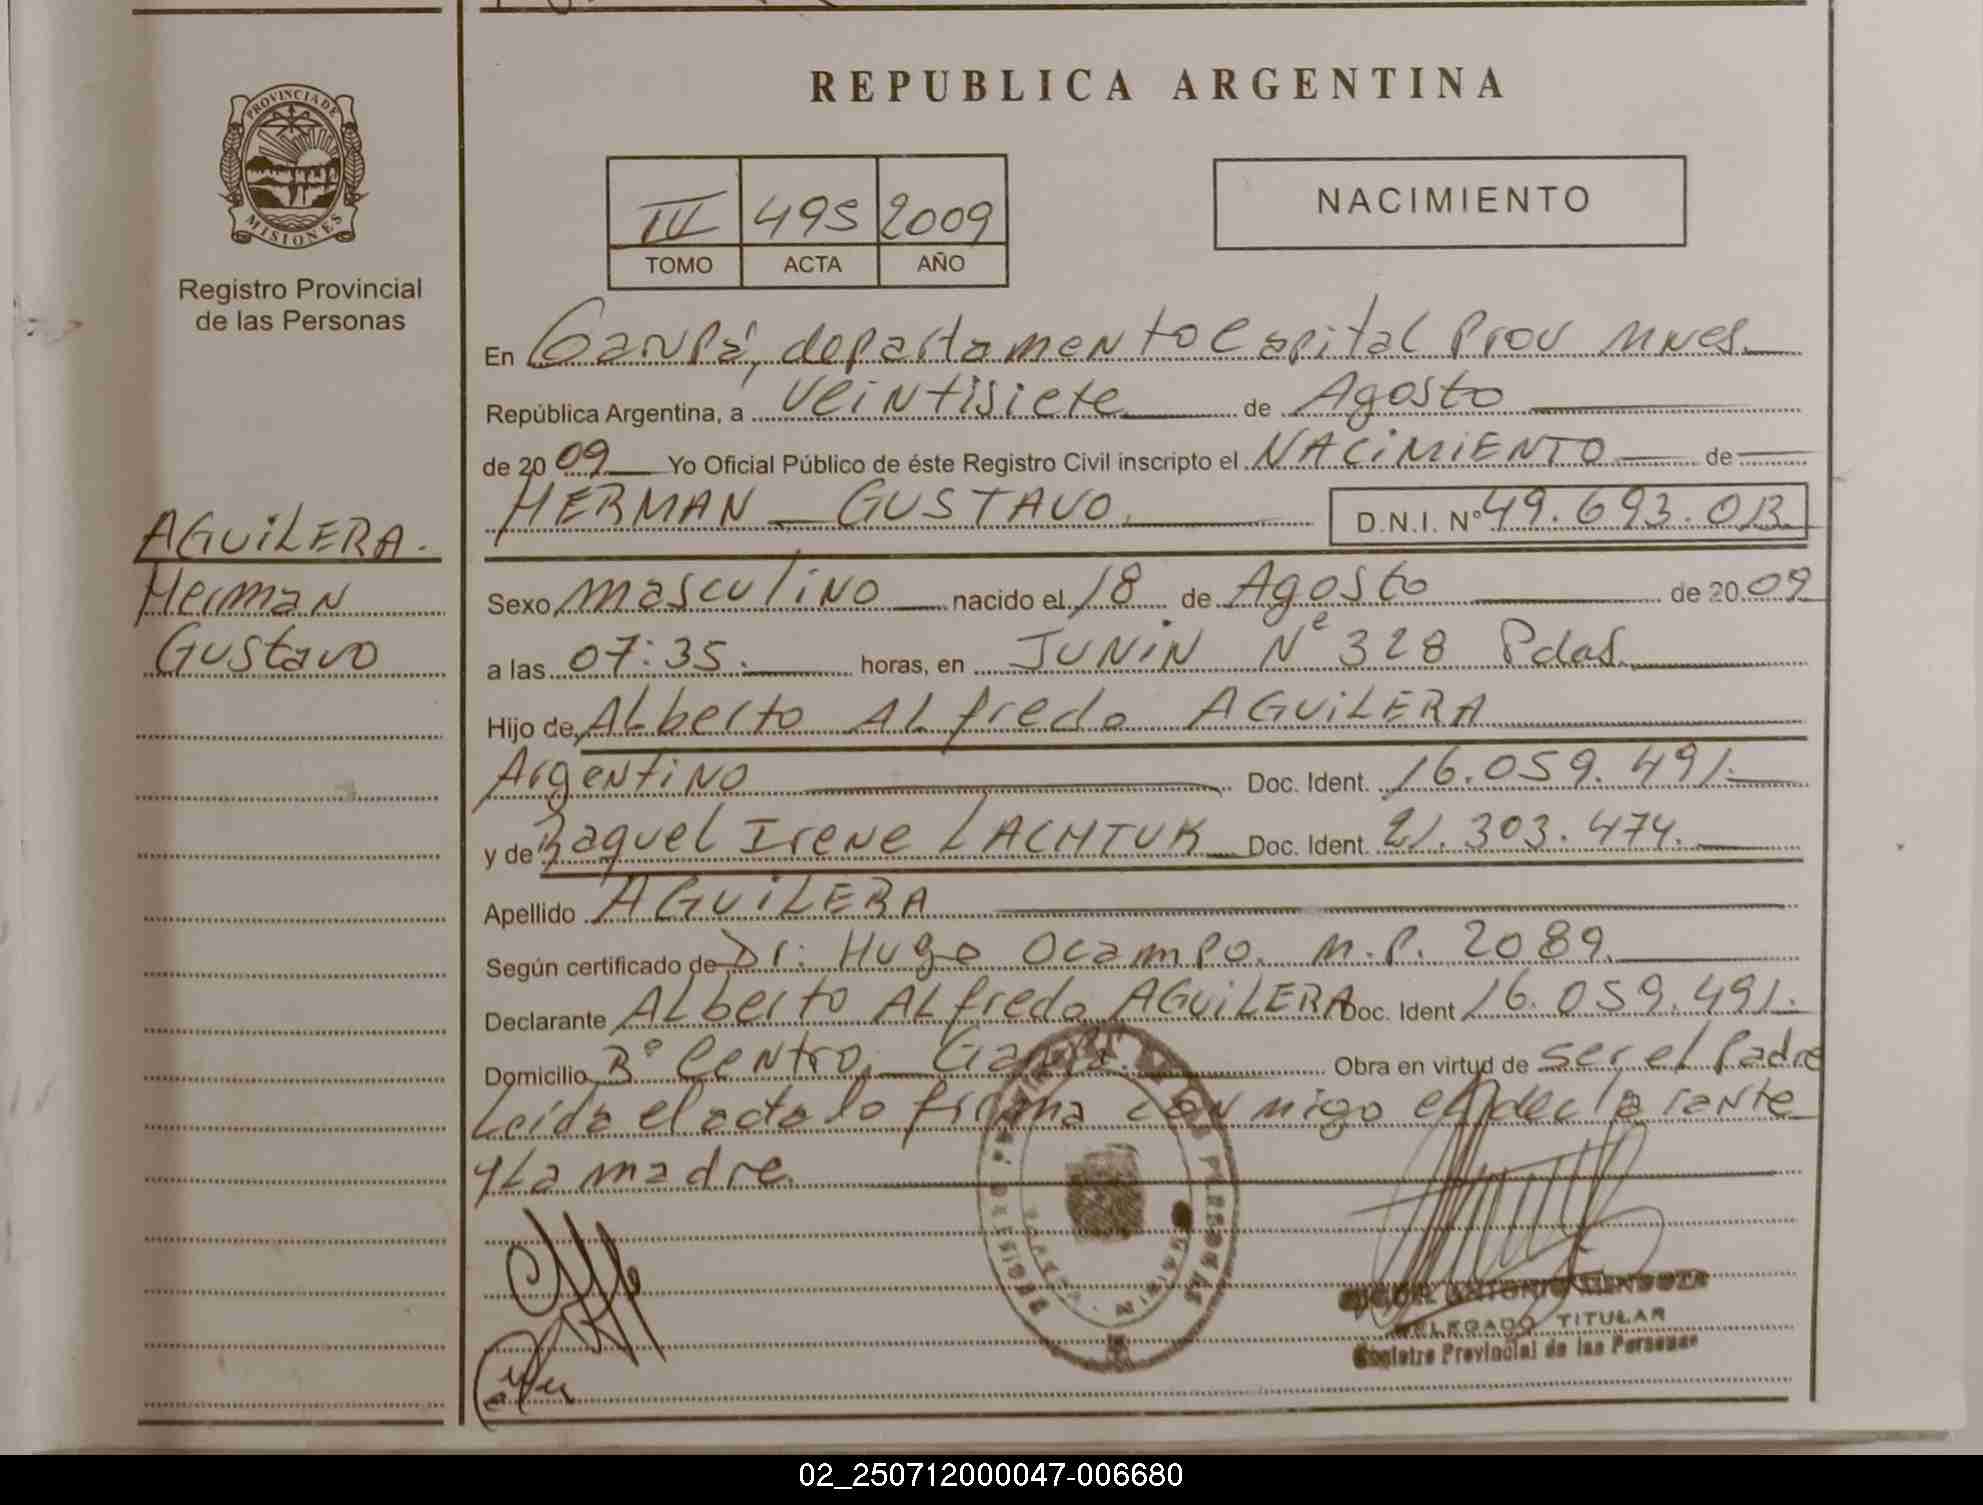 REPUBLICA ARGENTINA
PROVINCIA DE
MISIONES
Registro Provincial
de las Personas
IV 495 2009
TOMO ACTA AÑO
NACIMIENTO
En Garupá, departamento Capital Prov Mnes.
República Argentina, a veintisiete de Agosto
de 2009 Yo Oficial Público de éste Registro Civil inscripto el NACIMIENTO de
HERMAN GUSTAVO D.N.I. Nº 49.693.013
AGUILERA.
Herman
Gustavo
Sexo masculino nacido el 18 de Agosto de 2009
a las 07:35. horas, en JUNIN Nº 328 Pdas.
Hijo de Alberto Alfredo AGUILERA
Argentino Doc. Ident. 16.059.491.
y de Raquel Irene LACHIUK Doc. Ident. 21.303.474.
Apellido AGUILERA
Según certificado de Dr. Hugo Ocampo. M.P. 2089.
Declarante Alberto Alfredo AGUILERA Doc. Ident 16.059.491.
Domicilio Bº Centro, Garupá. Obra en virtud de ser el Padre
Leída el acta lo firma conmigo el declarante
y La madre.
ANTONIO MENDOZA
DELEGADO TITULAR
Registro Provincial de las Personas
02_250712000047-006680